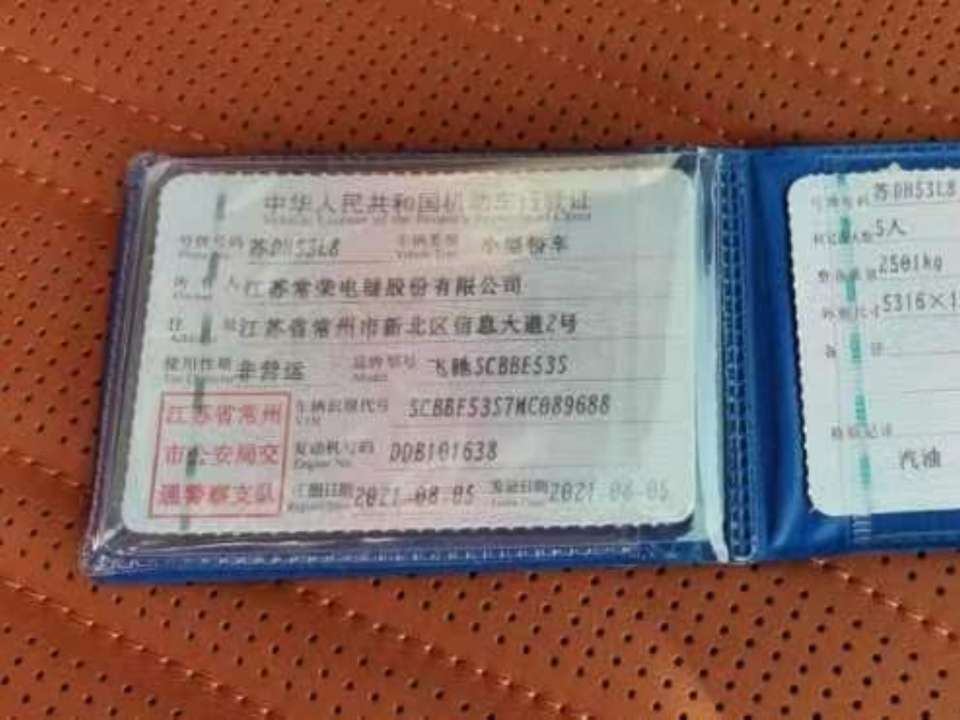 中华人民共和国机动车行驶证
号牌号码 苏DH53L8 车辆类型 小型轿车
所有人 江苏常荣电器股份有限公司
住址 江苏省常州市新北区信息大道2号
使用性质 非营运 品牌型号 飞驰SCBBE53S
Model
江苏省常州
市公安局交
通警察支队
车辆识别代号 SCBBE53S7MC089688
VIN
发动机号码 DDB101638
Engine No.
注册日期 2021-08-05 发证日期 2021-08-05
号牌号码 苏DH53L8
核定载人数 5人
整备质量 2501kg
外廓尺寸 5316×
备注
检验记录
汽油